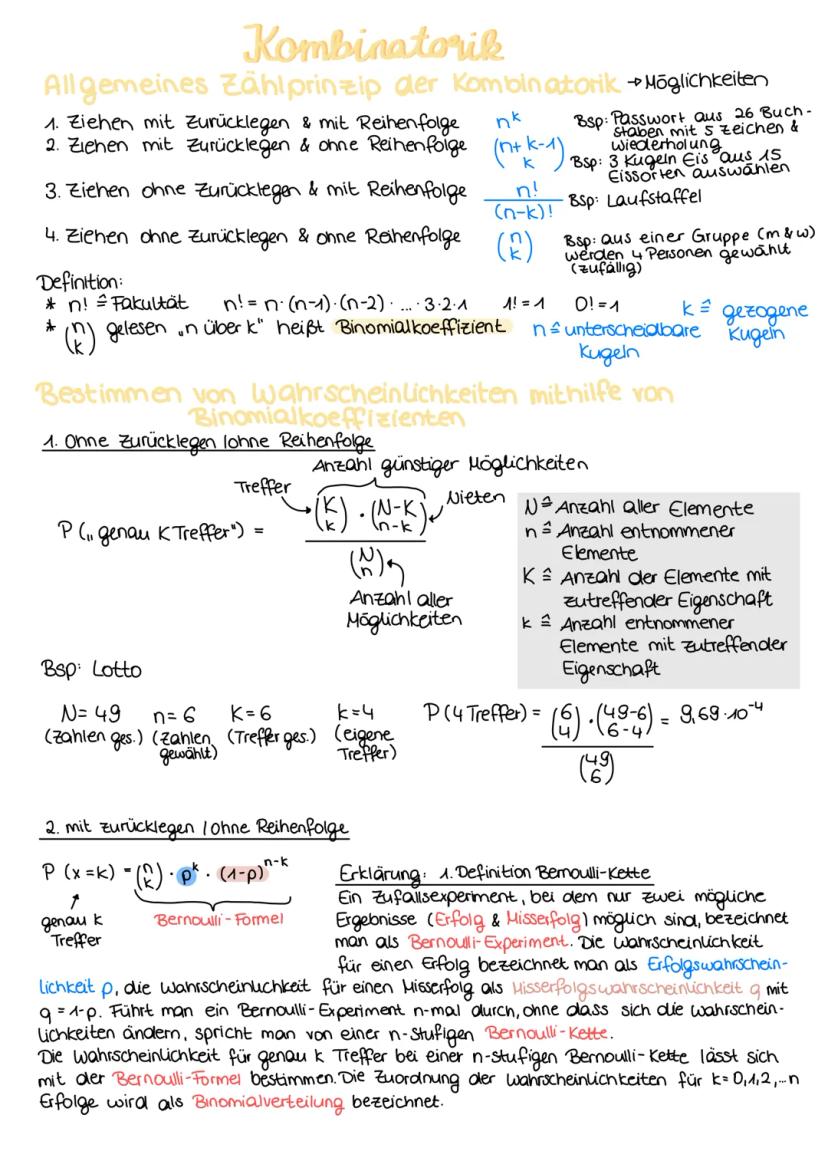 Kombinatorik
Allgemeines Zählprinzip der Kombinatorik → Möglichkeiten
1. Ziehen mit Zurücklegen & mit Reihenfolge n^k Bsp: Passwort aus 26 Buch-
staben mit 5 Zeichen &
Wiederholung
2. Ziehen mit Zurücklegen & ohne Reihenfolge (n+k-1 / k) Bsp: 3 Kugeln Eis aus 15
Eissorten auswählen
3. Ziehen ohne Zurücklegen & mit Reihenfolge n!/(n-k)! Bsp: Laufstaffel
4. Ziehen ohne Zurücklegen & ohne Reihenfolge (n / k) Bsp: aus einer Gruppe (m & w)
werden 4 Personen gewählt
(zufällig)
Definition:
* n! ≙ Fakultät n! = n·(n-1)·(n-2)· ... ·3·2·1 1! = 1 0! = 1
* (n / k) gelesen „n über k" heißt Binomialkoeffizient
n ≙ unterscheidbare
Kugeln
k ≙ gezogene
Kugeln
Bestimmen von Wahrscheinlichkeiten mithilfe von
Binomialkoeffizienten
1. Ohne Zurücklegen / ohne Reihenfolge
Anzahl günstiger Möglichkeiten
Treffer
Nieten
P („genau K Treffer") = (K / k) · (N-K / n-k)
(N / n)
Anzahl aller
Möglichkeiten
N ≙ Anzahl aller Elemente
n ≙ Anzahl entnommener
Elemente
K ≙ Anzahl der Elemente mit
zutreffender Eigenschaft
k ≙ Anzahl entnommener
Elemente mit zutreffender
Eigenschaft
Bsp: Lotto
N= 49 n= 6 K= 6 k=4
(Zahlen ges.) (Zahlen gewählt) (Treffer ges.) (eigene Treffer)
P (4 Treffer) = (6 / 4) · (49-6 / 6-4) = 9,69·10^-4
(49 / 6)
2. mit zurücklegen / ohne Reihenfolge
P (x=k) = (n / k) · p^k · (1-p)^n-k
genau k
Treffer
Bernoulli-Formel
Erklärung: 1. Definition Bernoulli-Kette
Ein Zufallsexperiment, bei dem nur zwei mögliche
Ergebnisse (Erfolg & Misserfolg) möglich sind, bezeichnet
man als Bernoulli-Experiment. Die Wahrscheinlichkeit
für einen Erfolg bezeichnet man als Erfolgswahrschein-
lichkeit p, die Wahrscheinlichkeit für einen Misserfolg als Misserfolgswahrscheinlichkeit q mit
q = 1-p. Führt man ein Bernoulli-Experiment n-mal durch, ohne dass sich die Wahrschein-
lichkeiten ändern, spricht man von einer n-stufigen Bernoulli-Kette.
Die Wahrscheinlichkeit für genau k Treffer bei einer n-stufigen Bernoulli-Kette lässt sich
mit der Bernoulli-Formel bestimmen. Die Zuordnung der Wahrscheinlichkeiten für k= 0,1,2,...n
Erfolge wird als Binomialverteilung bezeichnet.